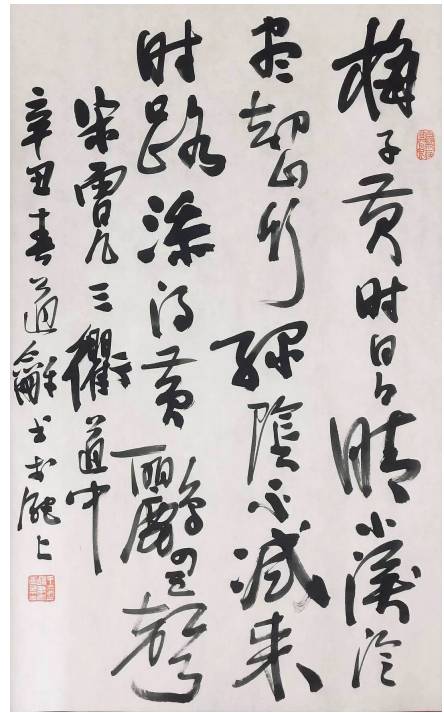 梅子黄时日日晴小溪泛
尽却山行绿陰不減来
时路添得黄鸝四五聲
宋曾几三衢道中
辛丑春道龢书於陇上